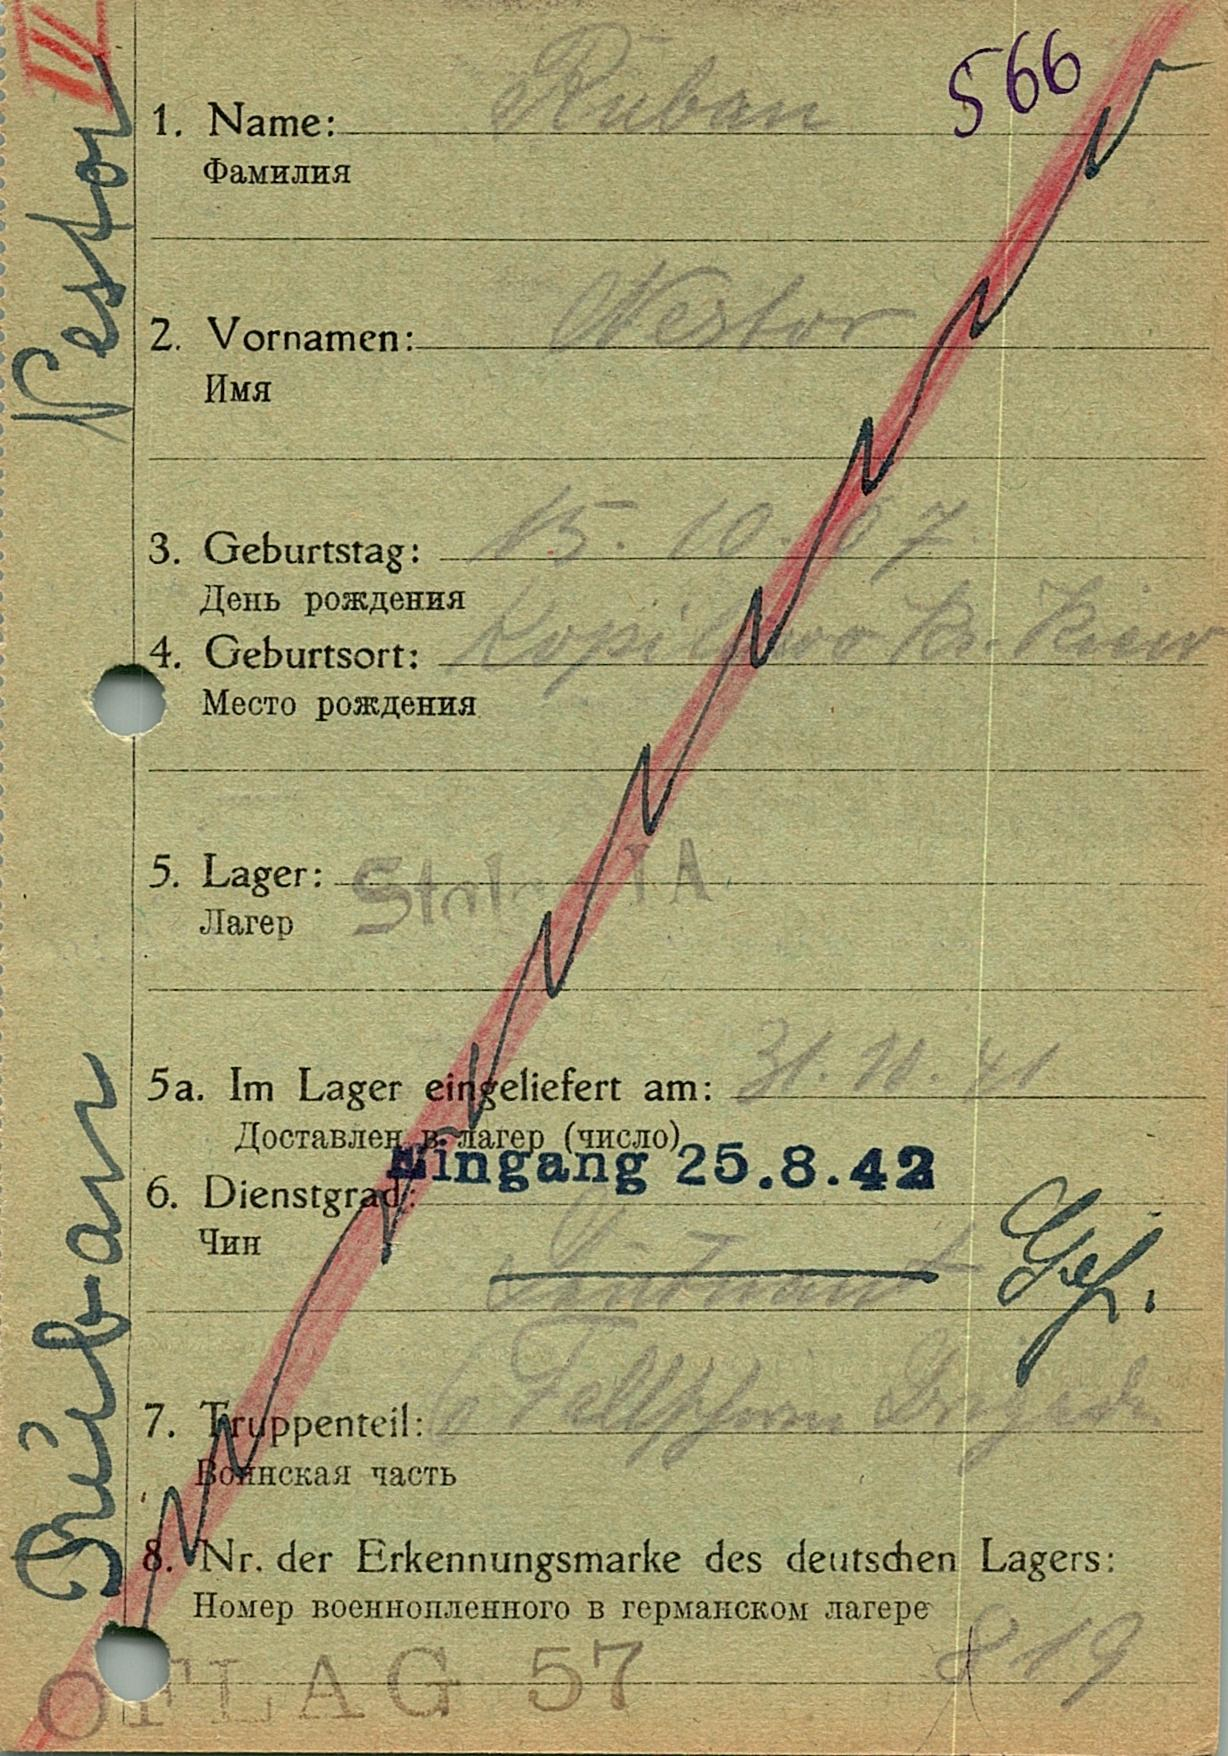 III
566
1. Name: Ruban
Фамилия
2. Vornamen: Nestor
Имя
3. Geburtstag: 15. 10. 07.
День рождения
4. Geburtsort: Kr. Kiew
Место рождения
5. Lager: Stalag I A.
Лагер
5a. Im Lager eingeliefert am: 31. 10. 41
Доставлен в лагер (число)
Eingang 25.8.42
6. Dienstgrad: Leutnant
Чин
Gef.
7. Truppenteil: 6 Brigade
Воинская часть
8. Nr. der Erkennungsmarke des deutschen Lagers:
Номер военнопленного в германском лагере
OFLAG 57 819
Ruban Nestor